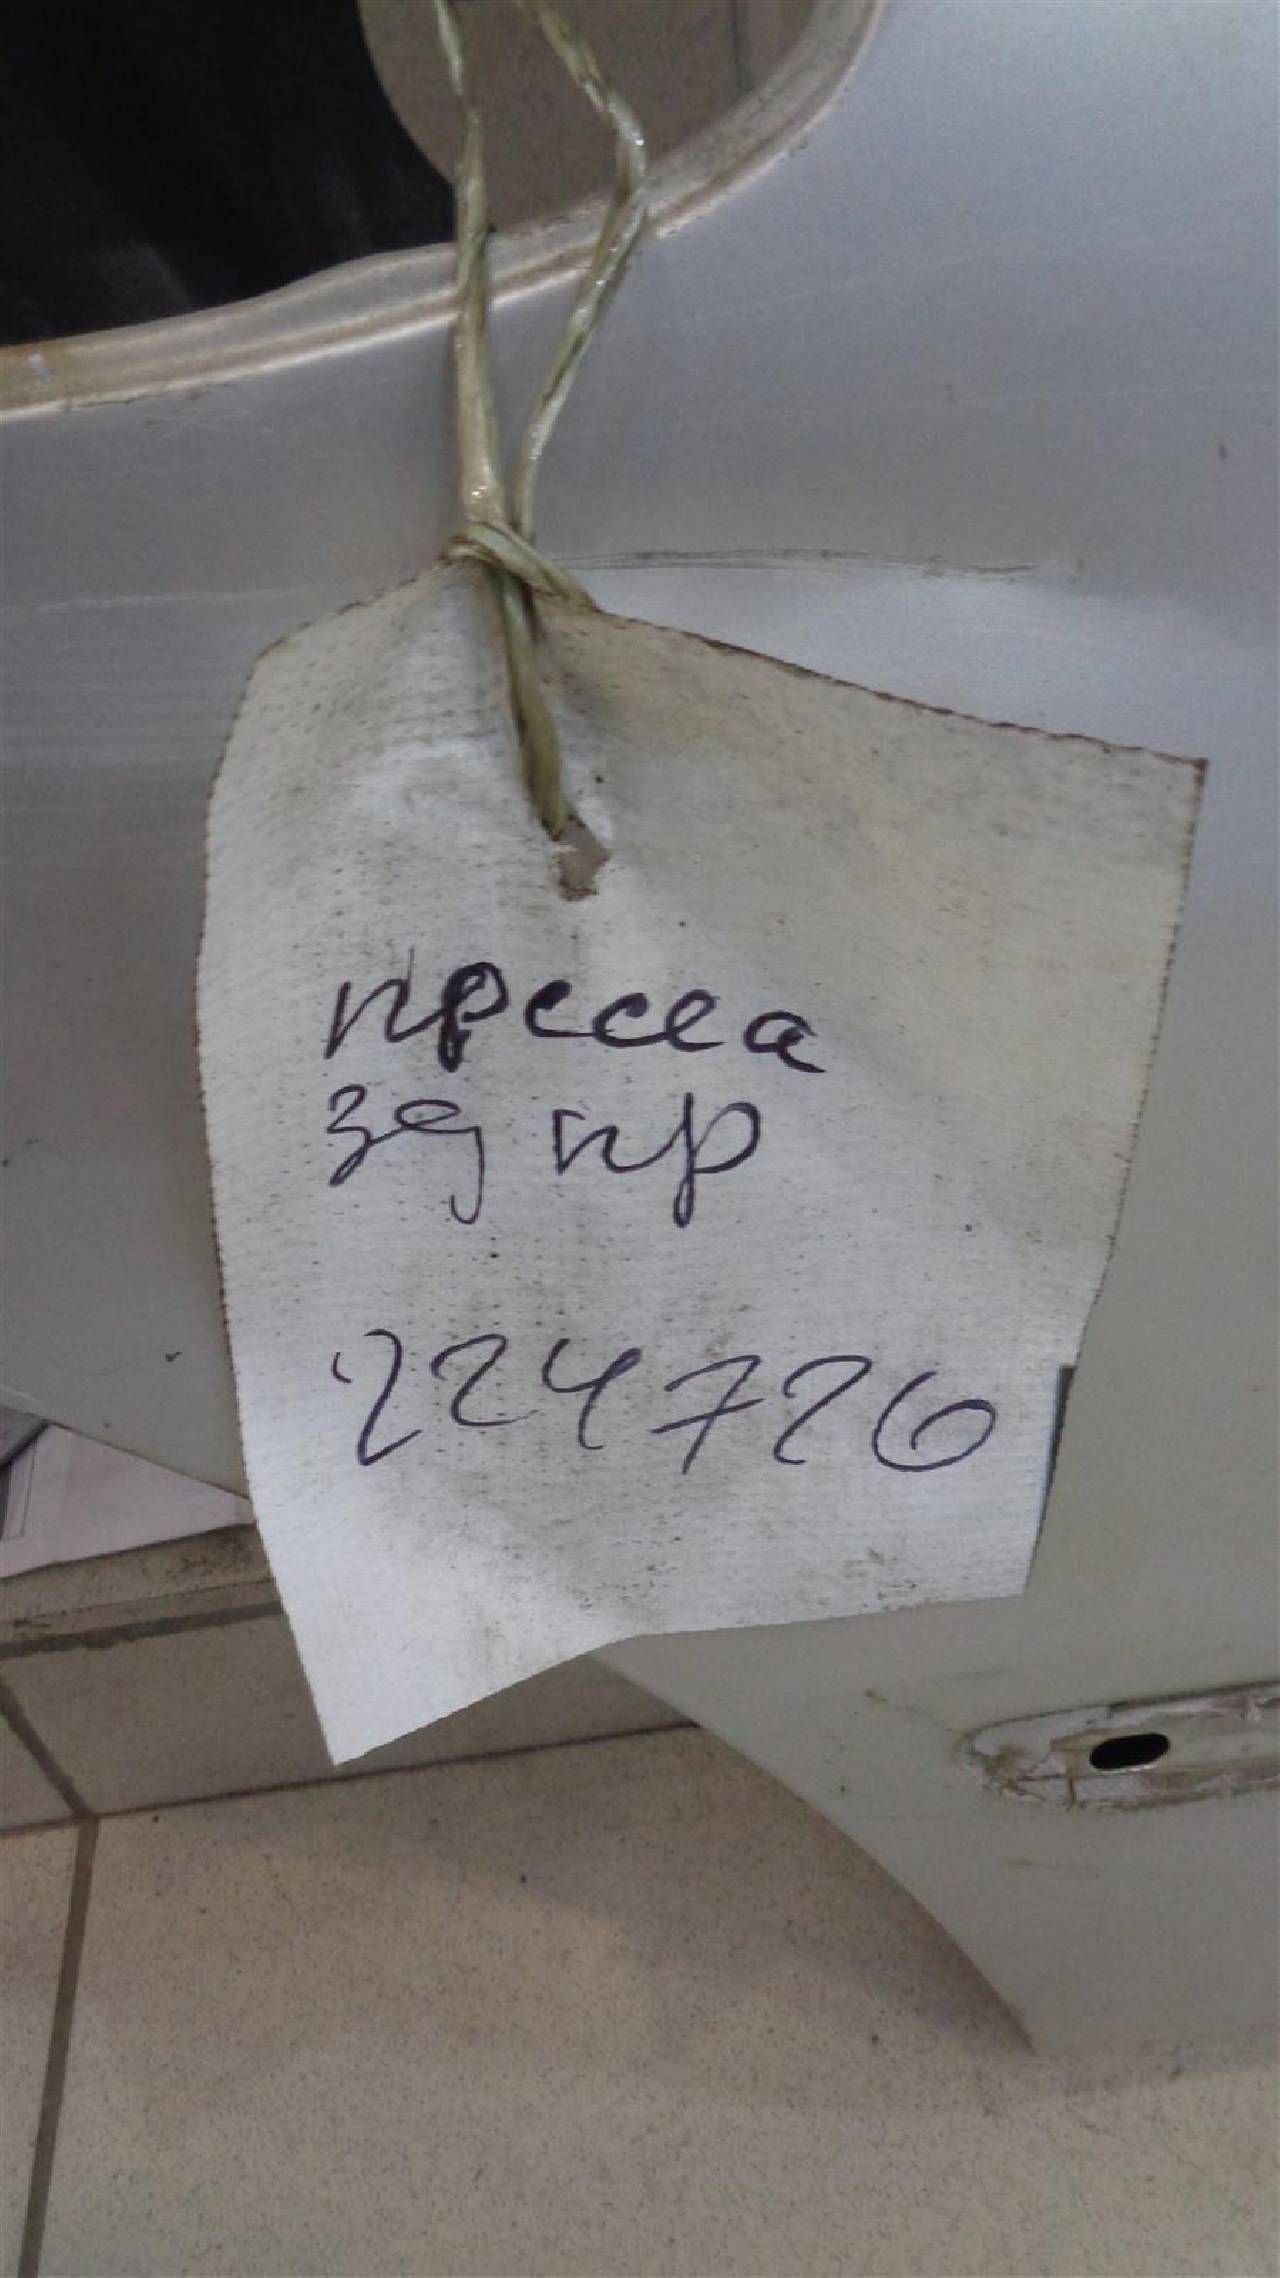 пресеа
зд пр
224726